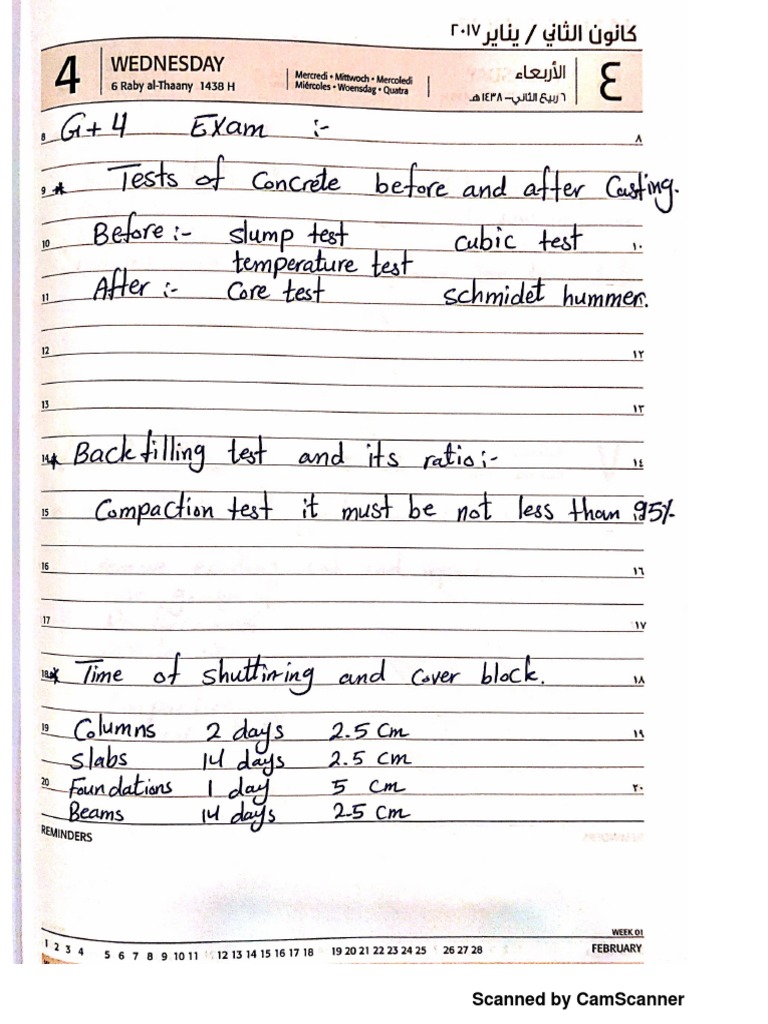 كانون الثاني / يناير ٢٠١٧
4 WEDNESDAY
6 Raby al-Thaany 1438 H
Mercredi • Mittwoch • Mercoledì
Miércoles • Woensdag • Quatra
الأربعاء
٦ ربيع الثاني - ١٤٣٨هـ
٤
8 G+4 Exam :- ٨
9 * Tests of Concrete before and after Casting.
10 Before :- slump test cubic test ١٠
temperature test
11 After :- Core test schmidet hummer.
12 ١٢
13 ١٣
14 * Backfilling test and its ratio :- ١٤
15 Compaction test it must be not less than 95%
16 ١٦
17 ١٧
18 * Time of shuttiring and cover block. ١٨
19 Columns 2 days 2.5 cm ١٩
Slabs 14 days 2.5 cm
20 Foundations 1 day 5 cm ٢٠
Beams 14 days 2.5 cm
REMINDERS
WEEK 01
1 2 3 4 5 6 7 8 9 10 11 12 13 14 15 16 17 18 19 20 21 22 23 24 25 26 27 28 FEBRUARY
Scanned by CamScanner